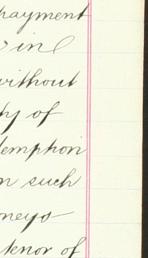 payment
in
without
ty of
emption
n such
neys
tenor of